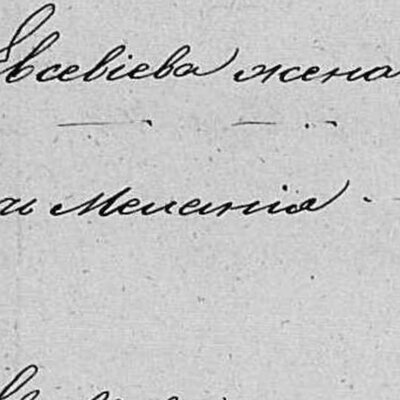 Евсевіева жена
и Меланія